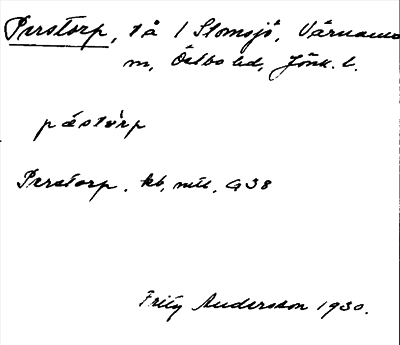 Perstorp, tå 1 Stomsjö, Värnamo
m, Östbo hd, Jönk. l.
pástòrp
Perstorp. kb, mtl, G38
Fritz Andersson 1930.